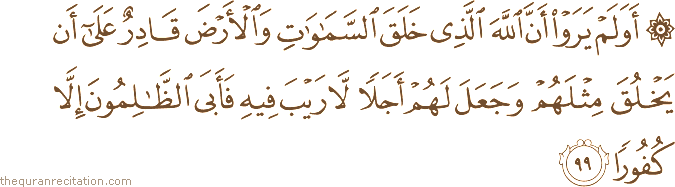 ۞ أَوَلَمْ يَرَوْا۟ أَنَّ ٱللَّهَ ٱلَّذِى خَلَقَ ٱلسَّمَـٰوَٰتِ وَٱلْأَرْضَ قَادِرٌ عَلَىٰٓ أَن
يَخْلُقَ مِثْلَهُمْ وَجَعَلَ لَهُمْ أَجَلًا لَّا رَيْبَ فِيهِ فَأَبَى ٱلظَّـٰلِمُونَ إِلَّا
كُفُورًا ٩٩
thequranrecitation.com/